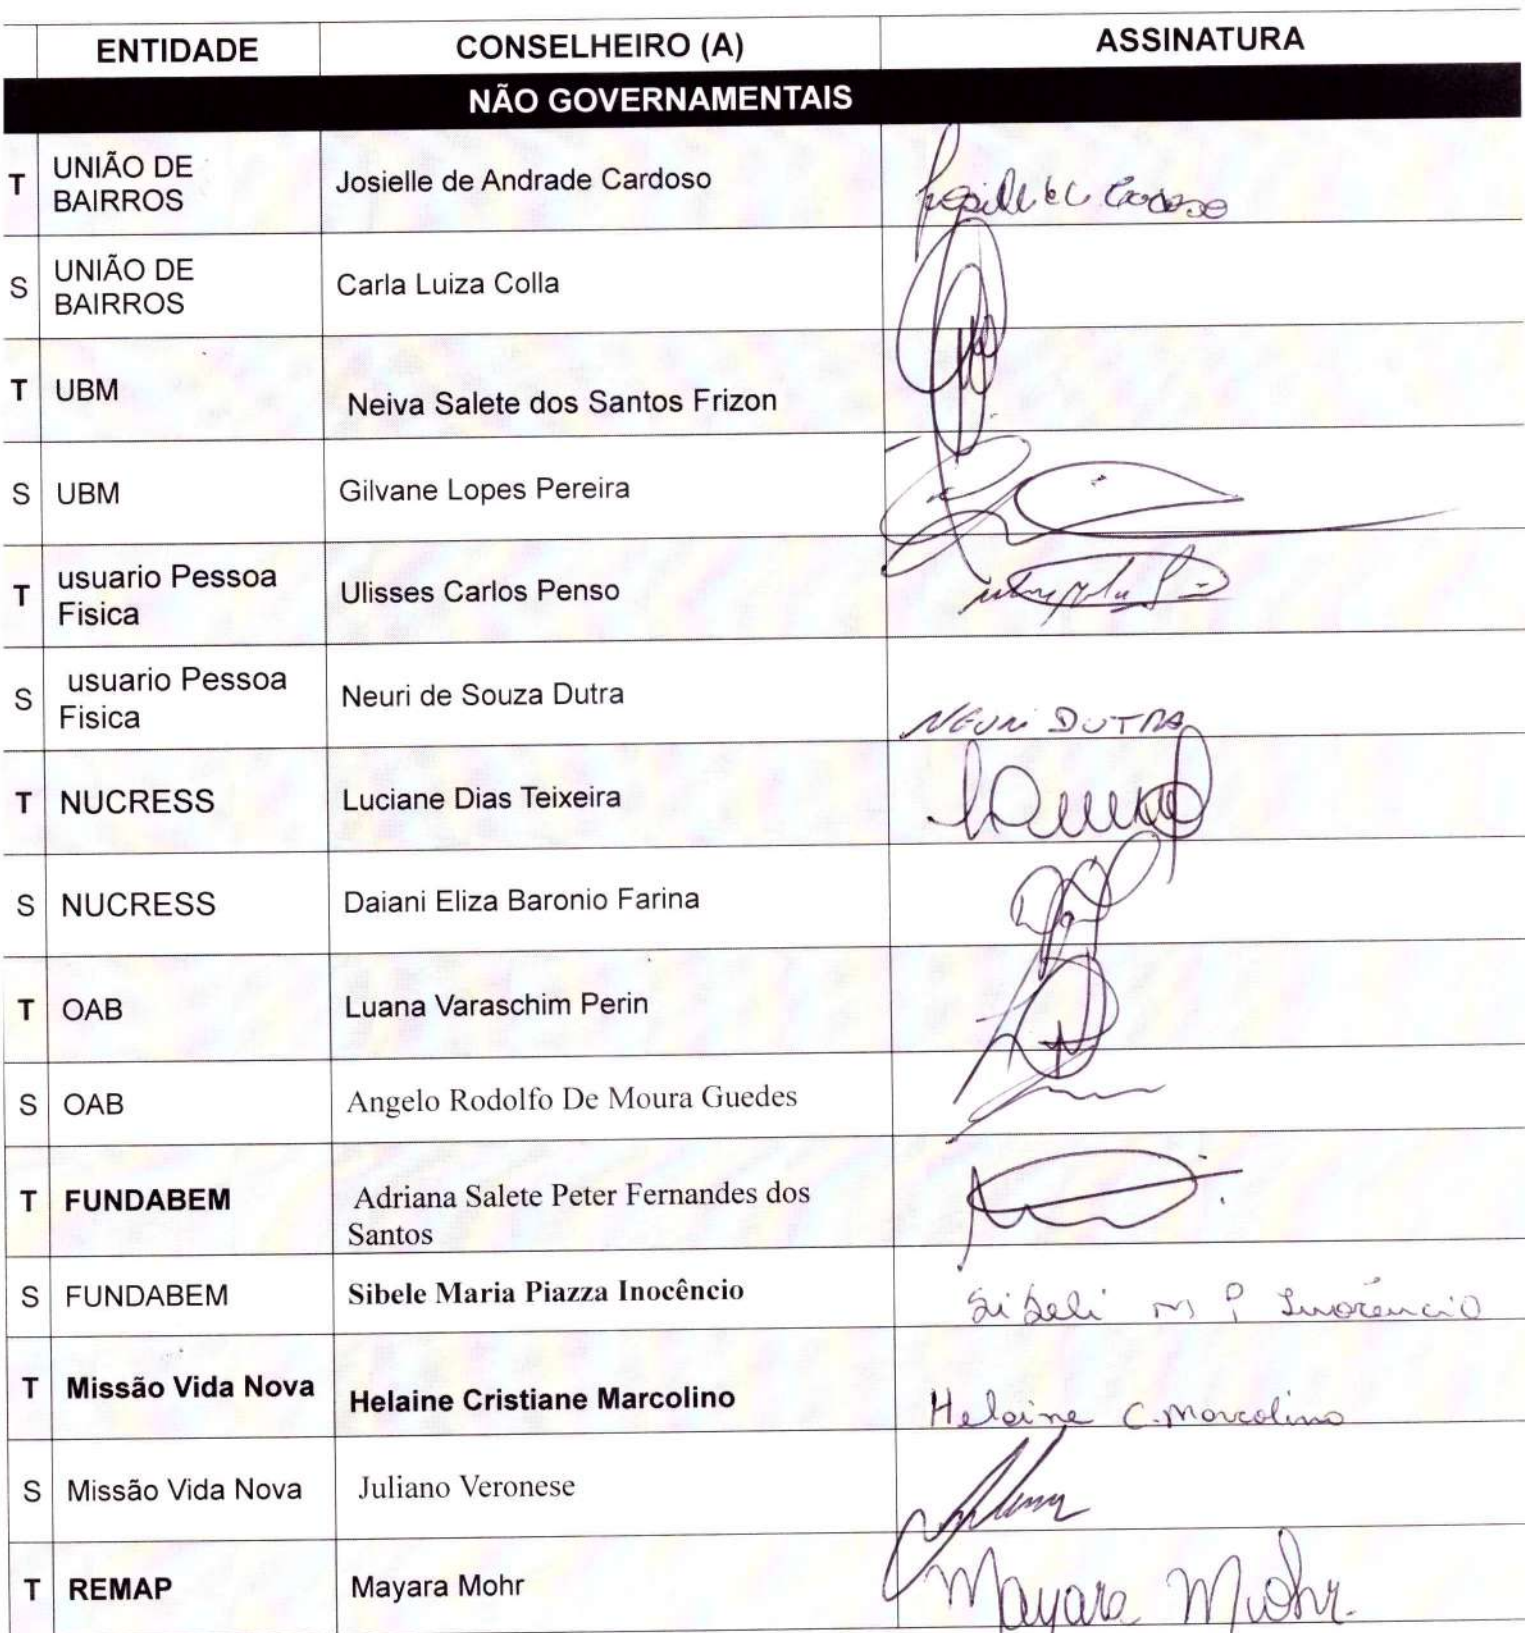 ENTIDADE CONSELHEIRO (A) ASSINATURA
NÃO GOVERNAMENTAIS
T UNIÃO DE
BAIRROS
Josielle de Andrade Cardoso
Cardoso
S UNIÃO DE
BAIRROS
Carla Luiza Colla
T UBM Neiva Salete dos Santos Frizon
S UBM Gilvane Lopes Pereira
T usuario Pessoa
Fisica
Ulisses Carlos Penso
S usuario Pessoa
Fisica
Neuri de Souza Dutra
NEURI DUTRA
T NUCRESS Luciane Dias Teixeira
S NUCRESS Daiani Eliza Baronio Farina
T OAB Luana Varaschim Perin
S OAB Angelo Rodolfo De Moura Guedes
T FUNDABEM Adriana Salete Peter Fernandes dos
Santos
S FUNDABEM Sibele Maria Piazza Inocêncio
Sibeli M P Inocêncio
T Missão Vida Nova Helaine Cristiane Marcolino
Helaine C. Marcolino
S Missão Vida Nova Juliano Veronese
T REMAP Mayara Mohr
Mayara Mohr.